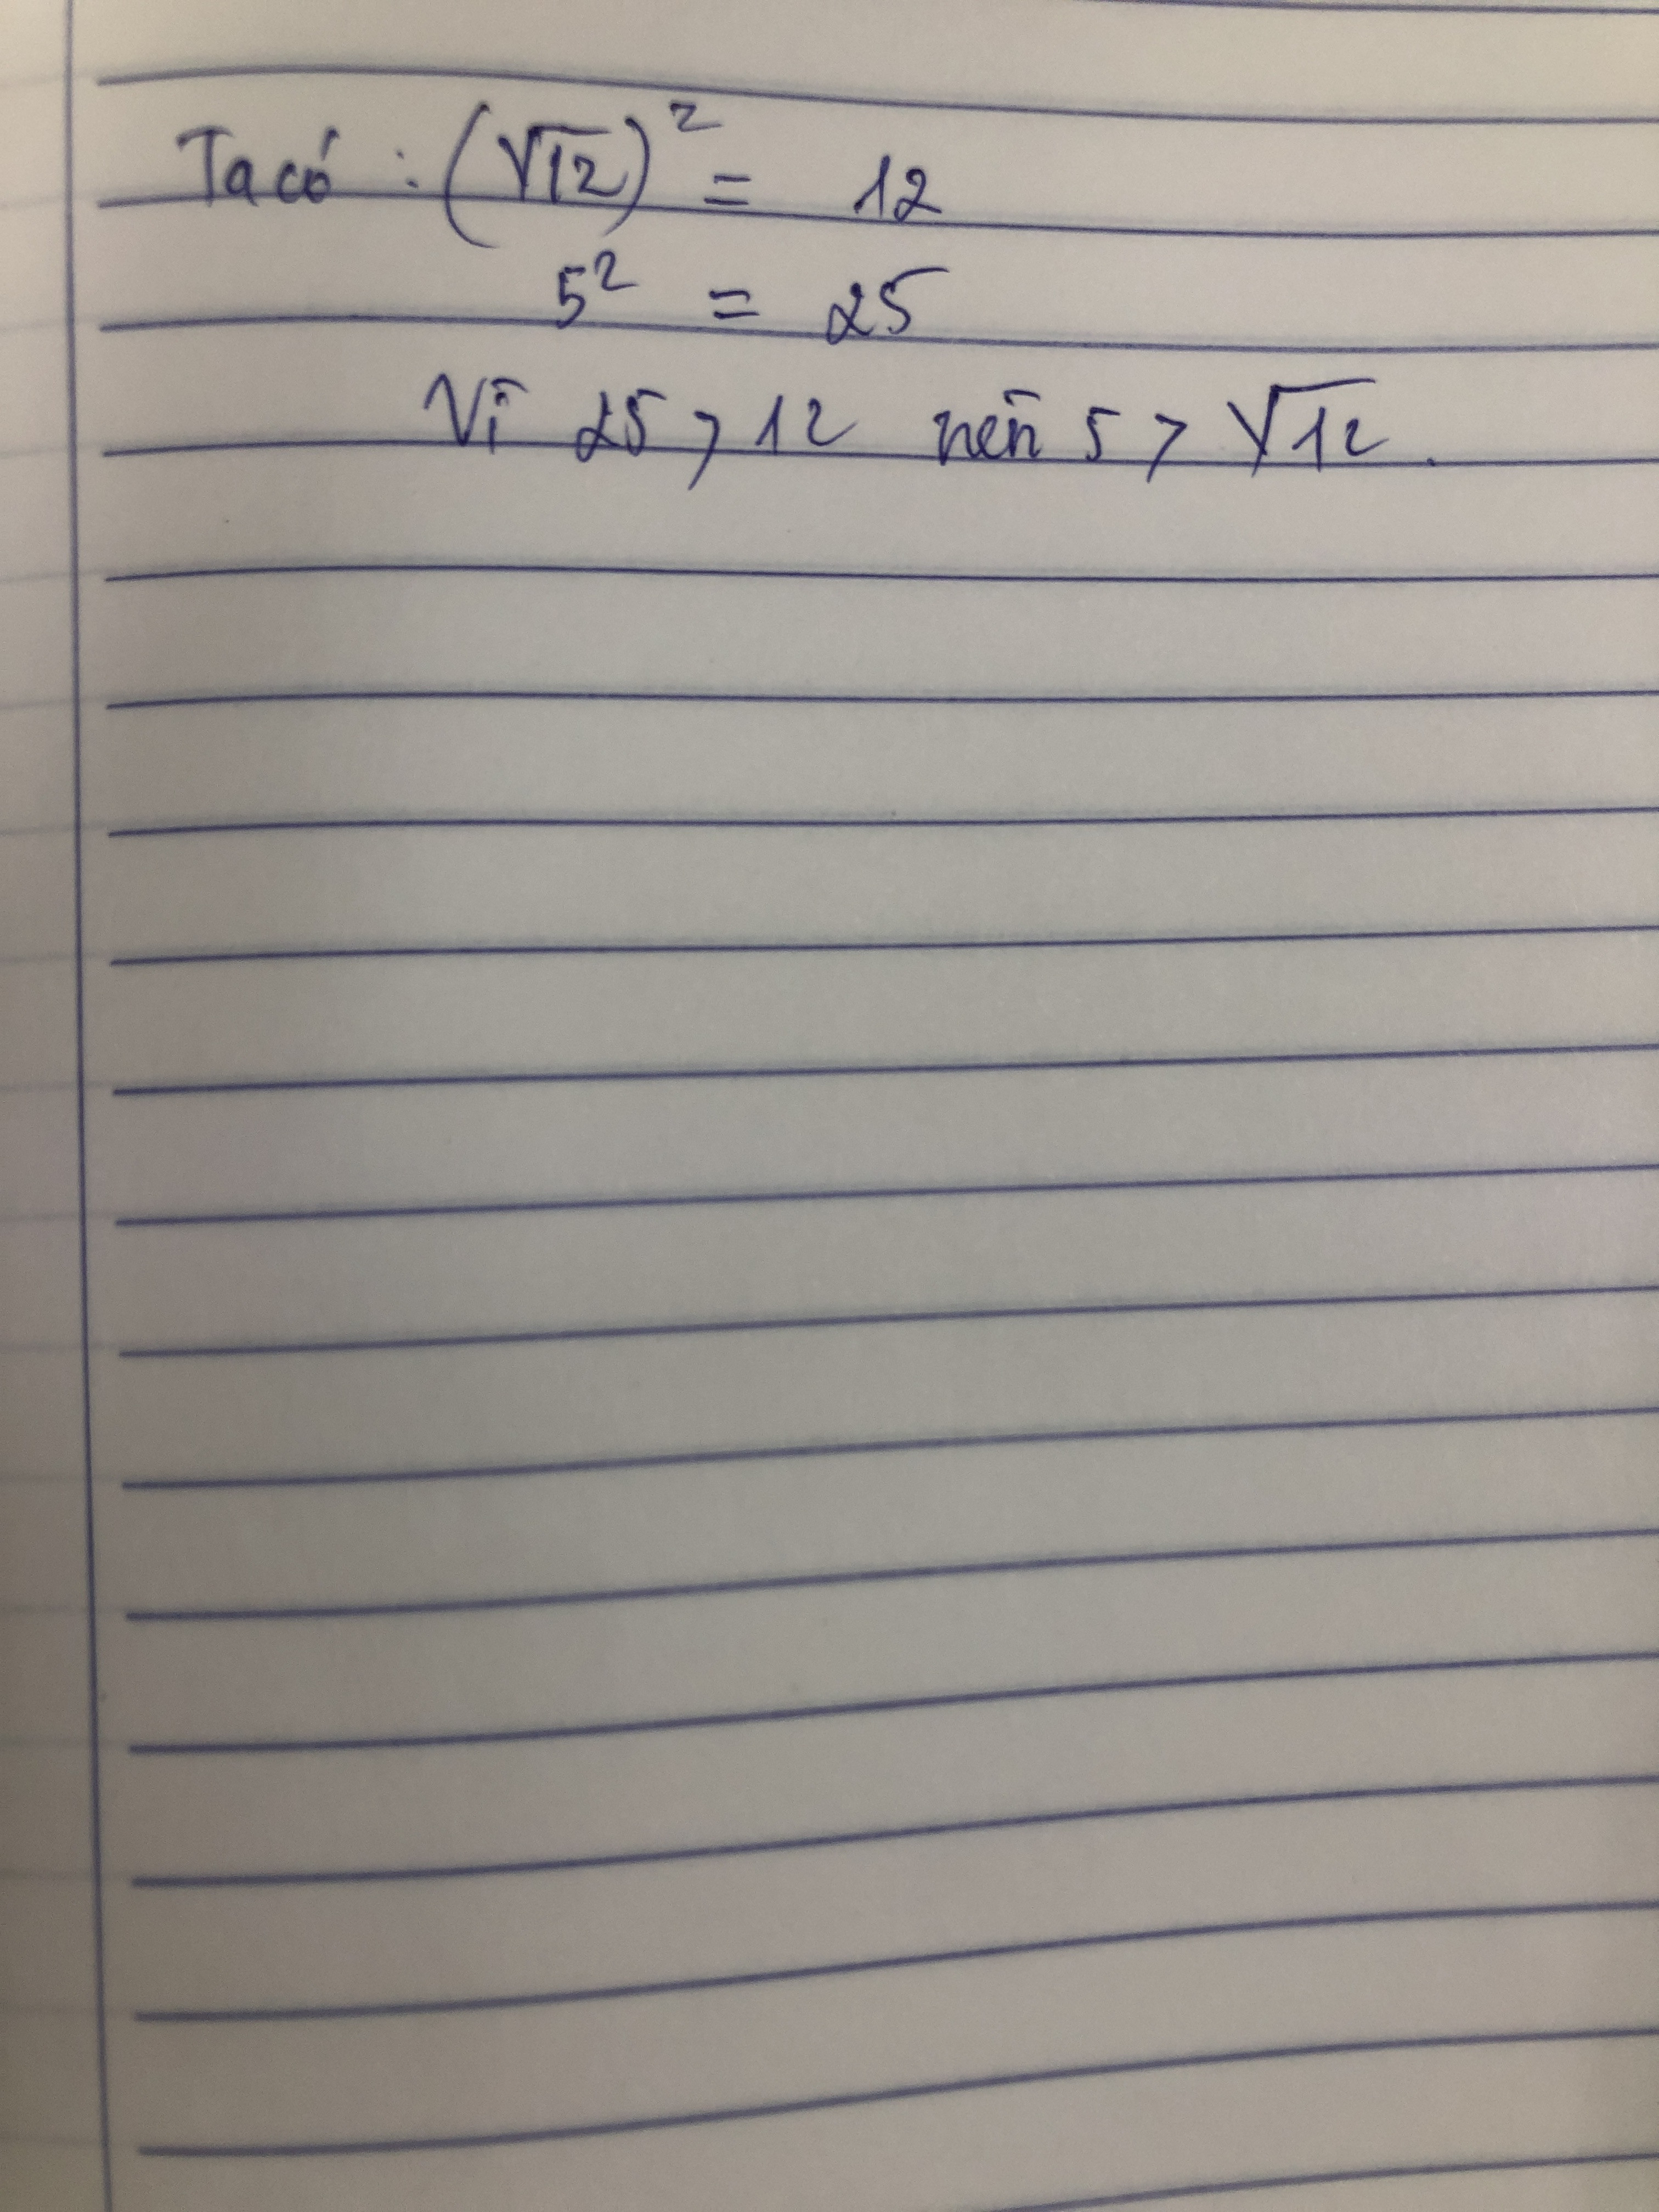 Ta có : (√12)² = 12
5² = 25
Vì 25 > 12 nên 5 > √12.